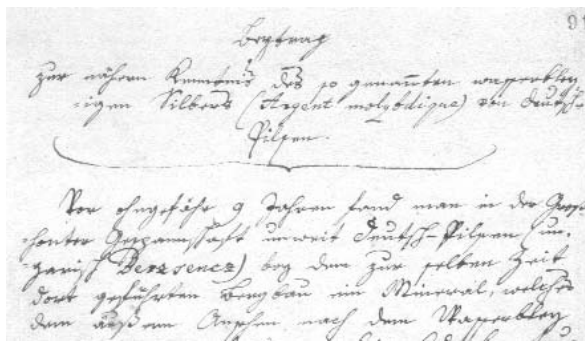 9
Beytrag
zur nähern Kenntnis des so genannten wasserbley
-igen Silbers (Argent molybdique) von deutsch
Pilsen.
Vor ohngefähr 9 Jahren fand man in der Gross
-honter Gespannschaft unweit deutsch-Pilsen (un,
-garisch Berzsencz) bey dem zur selben Zeit
dort geführten Bergbau ein Mineral, welches
dem äußern Ansehen nach dem Wasserbley